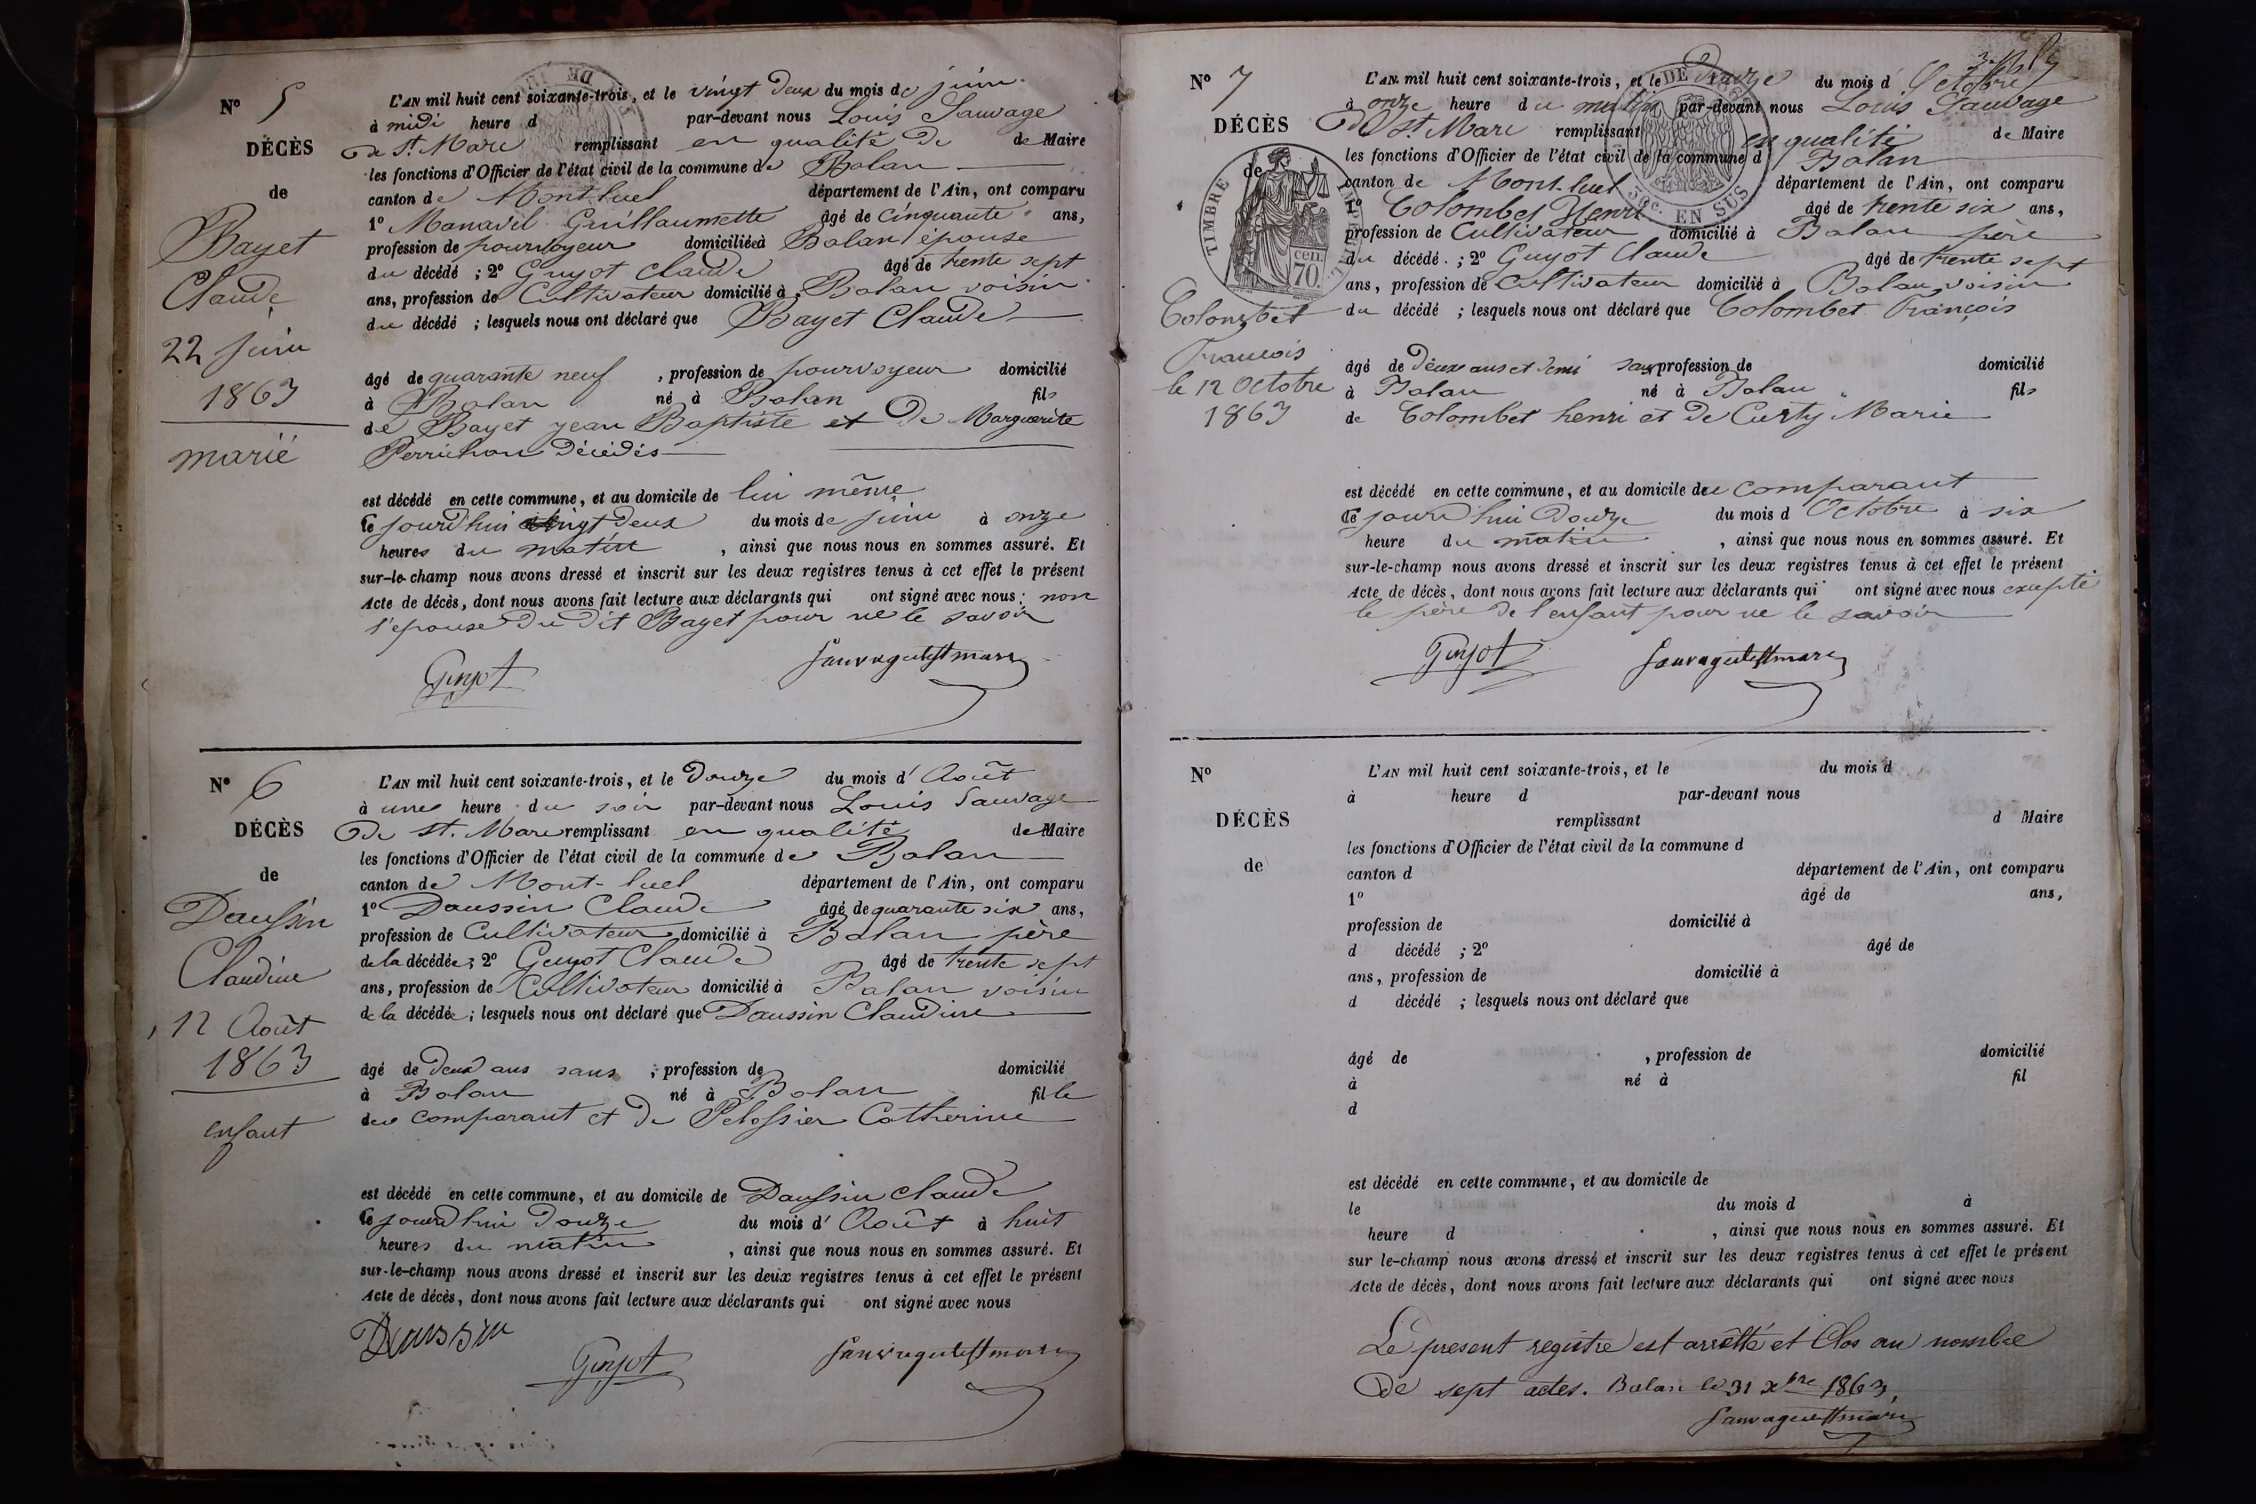 N° 5
DÉCÈS
de
Bayet
Claude
22 Juin
1863
marié
L'AN mil huit cent soixante-trois, et le vingt deux du mois de juin
à midi heure d par-devant nous Louis Sauvage
de St. Marc remplissant en qualité de de Maire
les fonctions d'Officier de l'état civil de la commune de Balan
canton de Mont-luel département de l'Ain, ont comparu
1° Manavel Guillaumette âgé de cinquante ans,
profession de pourvoyeur domiciliée à Balan épouse
du décédé ; 2° Guyot Claude âgé de trente sept
ans, profession de Cultivateur domicilié à Balan voisin
du décédé ; lesquels nous ont déclaré que Bayet Claude
âgé de quarante neuf , profession de pourvoyeur domicilié
à Balan né à Balan fils
de Bayet jean Baptiste et De Marguerite
Perrichon Décédés
est décédé en cette commune, et au domicile de lui même
ce jourd'hui vingt deux du mois de juin à onze
heures du matin , ainsi que nous nous en sommes assuré. Et
sur-le-champ nous avons dressé et inscrit sur les deux registres tenus à cet effet le présent
Acte de décès, dont nous avons fait lecture aux déclarants qui ont signé avec nous : non
l'epouse Du Dit Bayet pour ne le savoir
Guyot Sauvagedestmarc
N° 6
DÉCÈS
de
Daussin
Claudine
12 Août
1863
enfant
L'AN mil huit cent soixante-trois, et le Douze du mois d' Août
à une heure du soir par-devant nous Louis Sauvage
De St. Marc remplissant en qualité de Maire
les fonctions d'Officier de l'état civil de la commune de Balan
canton de Mont-luel département de l'Ain, ont comparu
1° Daussin Claude âgé de quarante six ans,
profession de Cultivateur domicilié à Balan père
de la décédée ; 2° Guyot Claude âgé de trente sept
ans, profession de Cultivateur domicilié à Balan voisin
de la décédée ; lesquels nous ont déclaré que Daussin Claudine
âgé de Deux ans sans , profession de domicilié
à Balan né à Balan fille
du comparant et De Pelossier Catherine
est décédé en cette commune, et au domicile de Daussin Claude
ce jourd'hui Douze du mois d' Août à huit
heures du matin , ainsi que nous nous en sommes assuré. Et
sur-le-champ nous avons dressé et inscrit sur les deux registres tenus à cet effet le présent
Acte de décès, dont nous avons fait lecture aux déclarants qui ont signé avec nous
Daussin Guyot Sauvagedestmarc
N° 7
DÉCÈS
de
TIMBRE
cen. 70.
Colombet
François
le 12 Octobre
1863
L'AN mil huit cent soixante-trois, et le Douze du mois d Octobre
à onze heure du matin par-devant nous Louis Sauvage
De St. Marc remplissant en qualité de Maire
les fonctions d'Officier de l'état civil de la commune d Balan
canton de Mont-luel département de l'Ain, ont comparu
1° Colombet Henri âgé de trente six ans,
profession de Cultivateur domicilié à Balan père
du décédé ; 2° Guyot Claude âgé de trente sept
ans, profession de Cultivateur domicilié à Balan voisin
du décédé ; lesquels nous ont déclaré que Colombet François
âgé de Deux ans et Demi sans profession de domicilié
à Balan né à Balan fils
de Colombet henri et De Curty Marie
est décédé en cette commune, et au domicile du comparant
ce jourd'hui Douze du mois d Octobre à six
heure du matin , ainsi que nous nous en sommes assuré. Et
sur-le-champ nous avons dressé et inscrit sur les deux registres tenus à cet effet le présent
Acte de décès, dont nous avons fait lecture aux déclarants qui ont signé avec nous excepté
le père De l'enfant pour ne le savoir
Guyot Sauvagedestmarc
N°
DÉCÈS
de
L'AN mil huit cent soixante-trois, et le du mois d
à heure d par-devant nous
remplissant d Maire
les fonctions d'Officier de l'état civil de la commune d
canton d département de l'Ain, ont comparu
1° âgé de ans,
profession de domicilié à
d décédé ; 2° âgé de
ans, profession de domicilié à
d décédé ; lesquels nous ont déclaré que
âgé de , profession de domicilié
à né à fil
d
est décédé en cette commune, et au domicile de
le du mois d à
heure d , ainsi que nous nous en sommes assuré. Et
sur le-champ nous avons dressé et inscrit sur les deux registres tenus à cet effet le présent
Acte de décès, dont nous avons fait lecture aux déclarants qui ont signé avec nous
Le present registre est arrêtté et Clos au nombre
De sept actes. Balan le 31 xbre 1863,
Sauvagedestmarc